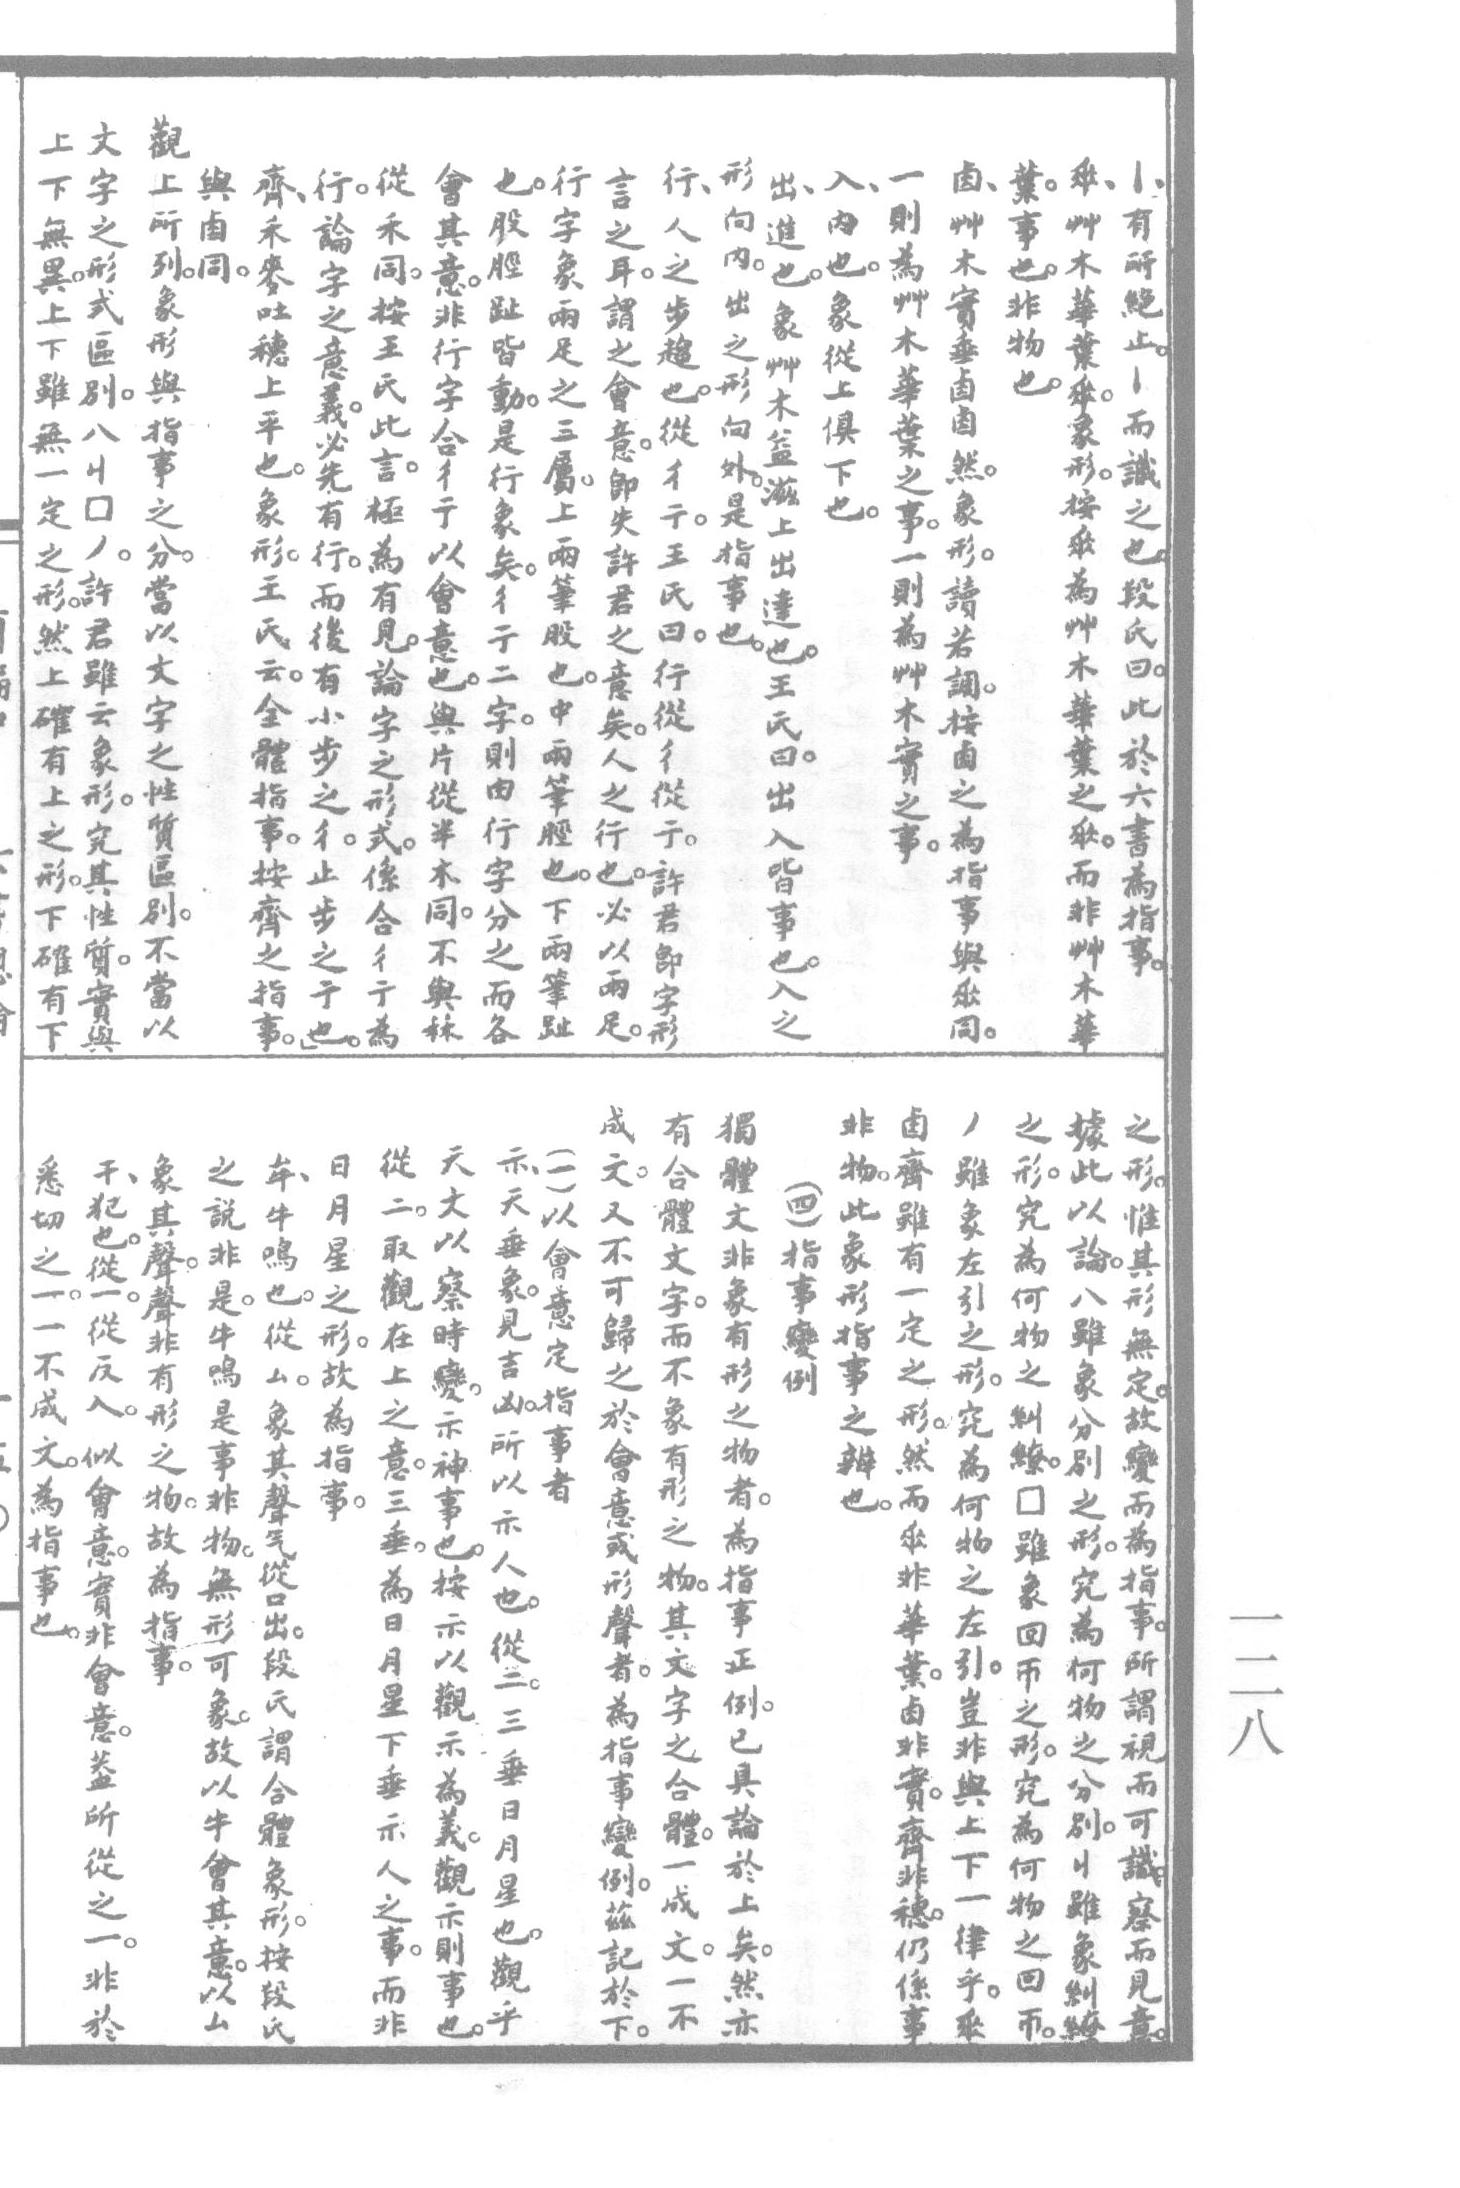 丨、有所絕止。丨而識之也。段氏曰。此於六書為指事。
𠂹、艸木華葉𠂹。象形。按𠂹為艸木華葉之𠂹。而非艸木華
葉。事也。非物也。
卤、艸木實垂卤卤然。象形。讀若調。按卤之為指事與𠂹同。
一則為艸木華葉之事。一則為艸木實之事。
入、內也。象從上俱下也。
出、進也。象艸木益滋上出達也。王氏曰。出入皆事也。入之
形向內。出之形向外。是指事也。
行、人之步趨也。從彳亍。王氏曰。行從彳從亍。許君即字形
言之耳。謂之會意。即失許君之意矣。人之行也。必以兩足。
行字象兩足之三屬。上兩筆股也。中兩筆脛也。下兩筆趾
也。股脛趾皆動。是行象矣。彳亍二字。則由行字分之而各
會其意。非行字合彳亍以會意也。與片從半木同。不與秝
從禾同。按王氏此言。極為有見。論字之形式。係合彳亍為
行。論字之意義。必先有行。而後有小步之彳。止步之亍也。」
齊、禾麥吐穗上平也。象形。王氏云。全體指事。按齊之指事。
與卤同。
觀上所列。象形與指事之分。當以文字之性質區別。不當以
文字之形式區別。八丩囗丿。許君雖云象形。究其性質。實與
上下無異。上下雖無一定之形。然上確有上之形。下確有下
之形。惟其形無定。故變而為指事。所謂視而可識。察而見意。
據此以論。八雖象分別之形。究為何物之分別。丩雖象糾繚
之形。究為何物之糾繚。囗雖象回帀之形。究為何物之回帀。
丿雖象左引之形。究為何物之左引。豈非與上下一律乎。𠂹
卤齊雖有一定之形。然而𠂹非華葉。卤非實。齊非穗。仍係事
非物。此象形指事之辨也。
(四)指事變例
獨體文非象有形之物者。為指事正例。已具論於上矣。然亦
有合體文字。而不象有形之物。其文字之合體。一成文。一不
成文。又不可歸之於會意或形聲者。為指事變例。茲記於下。
(一)以會意定指事者
示、天垂象。見吉凶。所以示人也。從二。三垂日月星也。觀乎
天文以察時變。示神事也。按示以觀示為義。觀示則事也。
從二。取觀在上之意。三垂。為日月星下垂示人之事。而非
日月星之形。故為指事。
牟、牛鳴也。從厶。象其聲气從口出。段氏謂合體象形。按段氏
之說非是。牛鳴是事非物。無形可象。故以牛會其意。以厶
象其聲。聲非有形之物。故為指事。
干、犯也。從一。從反入。似會意。實非會意。蓋所從之一。非於
悉切之一。一不成文。為指事也。
一二八